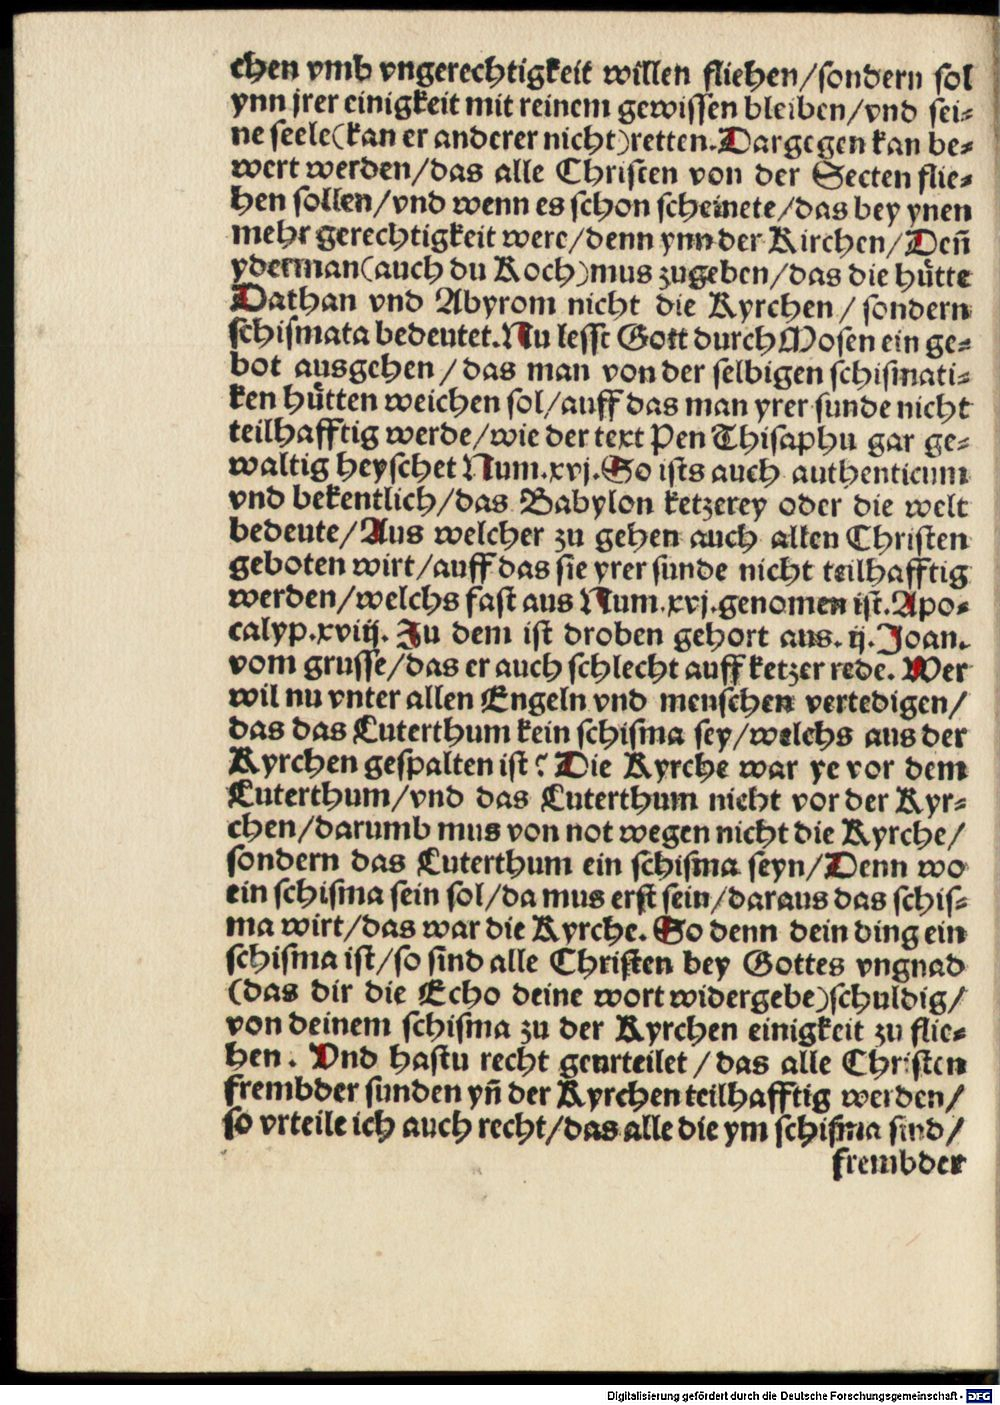 chen vmb vngerechtigkeit willen fliehen/sondern sol
ynn jrer einigkeit mit reinem gewissen bleiben/vnd sei⸗
ne seele(kan er anderer nicht)retten.Dargegen kan be⸗
wert werden/das alle Christen von der Secten flie⸗
hen sollen/vnd wenn es schon scheinete/das bey ynen
mehr gerechtigkeit were/denn ynn der Kirchen/Deñ
yderman(auch du Koch)mus zugeben/das die hütte
Dathan vnd Abyrom nicht die Kyrchen/sondern
schismata bedeutet.Nu lesst Gott durch Mosen ein ge⸗
bot ausgehen/das man von der selbigen schismati⸗
ken hütten weichen sol/auff das man yrer sunde nicht
teilhafftig werde/wie der text Pen Thisaphu gar ge⸗
waltig heyschet Num.xvj.So ists auch authenticum
vnd bekentlich/das Babylon ketzerey oder die welt
bedeute/Aus welcher zu gehen auch allen Christen
geboten wirt/auff das sie yrer sunde nicht teilhafftig
werden/welchs fast aus Num.xvj.genomen ist.Apo⸗
calyp.xviij. Zu dem ist droben gehort aus.ij.Joan.
vom grusse/das er auch schlecht auff ketzer rede. Wer
wil nu vnter allen Engeln vnd menschen vertedigen/
das das Luterthum kein schisma sey/welchs aus der
Kyrchen gespalten ist? Die Kyrche war ye vor dem
Luterthum/vnd das Luterthum nicht vor der Kyr⸗
chen/darumb mus von not wegen nicht die Kyrche/
sondern das Luterthum ein schisma seyn/Denn wo
ein schisma sein sol/da mus erst sein/daraus das schis⸗
ma wirt/das war die Kyrche. So denn dein ding ein
schisma ist/so sind alle Christen bey Gottes vngnad
(das dir die Echo deine wort widergebe)schuldig/
von deinem schisma zu der Kyrchen einigkeit zu flie⸗
hen. Vnd hastu recht geurteilet/das alle Christen
frembder sunden yñ der Kyrchen teilhafftig werden/
so vrteile ich auch recht/das alle die ym schisma sind/
frembder
Digitalisierung gefördert durch die Deutsche Forschungsgemeinschaft - DFG